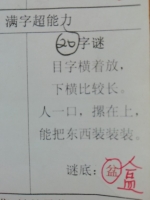 满字超能力
20字谜
目字横着放，
下横比较长。
人一口，摞在上，
能把东西装装装。
谜底：盆盒